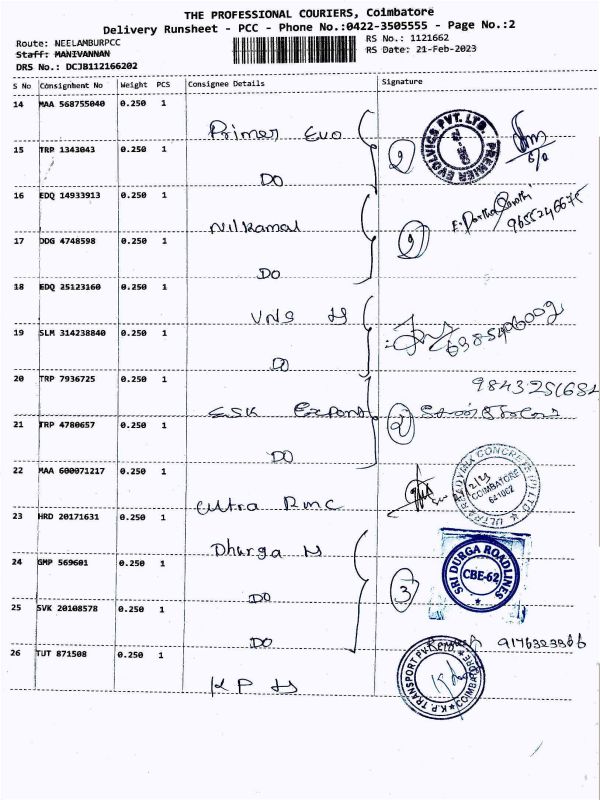 THE PROFESSIONAL COURIERS, Coimbatore
Delivery Runsheet - PCC - Phone No.:0422-3505555 - Page No.:2
Route: NEELAMBURPCC
Staff: MANIVANNAN
DRS No.: DCJB112166202
RS No.: 1121662
RS Date: 21-Feb-2023
S No Consignment No Weight PCS Consignee Details Signature
14 MAA 568755040 0.250 1
Primer Evo
15 TRP 1343043 0.250 1
DO
2
PREMIER EVOLVICS PVT. LTD.
16 EDQ 14933913 0.250 1
Nilkamal
17 DDG 4748598 0.250 1
DO
9655246675
18 EDQ 25123160 0.250 1
VNS H
19 SLM 314238840 0.250 1
DO
20 TRP 7936725 0.250 1
ESK Export
21 TRP 4780657 0.250 1
DO
2
22 MAA 600071217 0.250 1
Ultra RMC
ULTRA READYMIX CONCRETE (P) LTD.
COIMBATORE
641062
23 HRD 20171631 0.250 1
Dhurga H
24 GMP 569601 0.250 1
DO
3
SRI DURGA ROADLINES
CBE-62
25 SVK 20108578 0.250 1
DO
26 TUT 871508 0.250 1
KP H
K.P. TRANSPORT PV
COIMBATORE